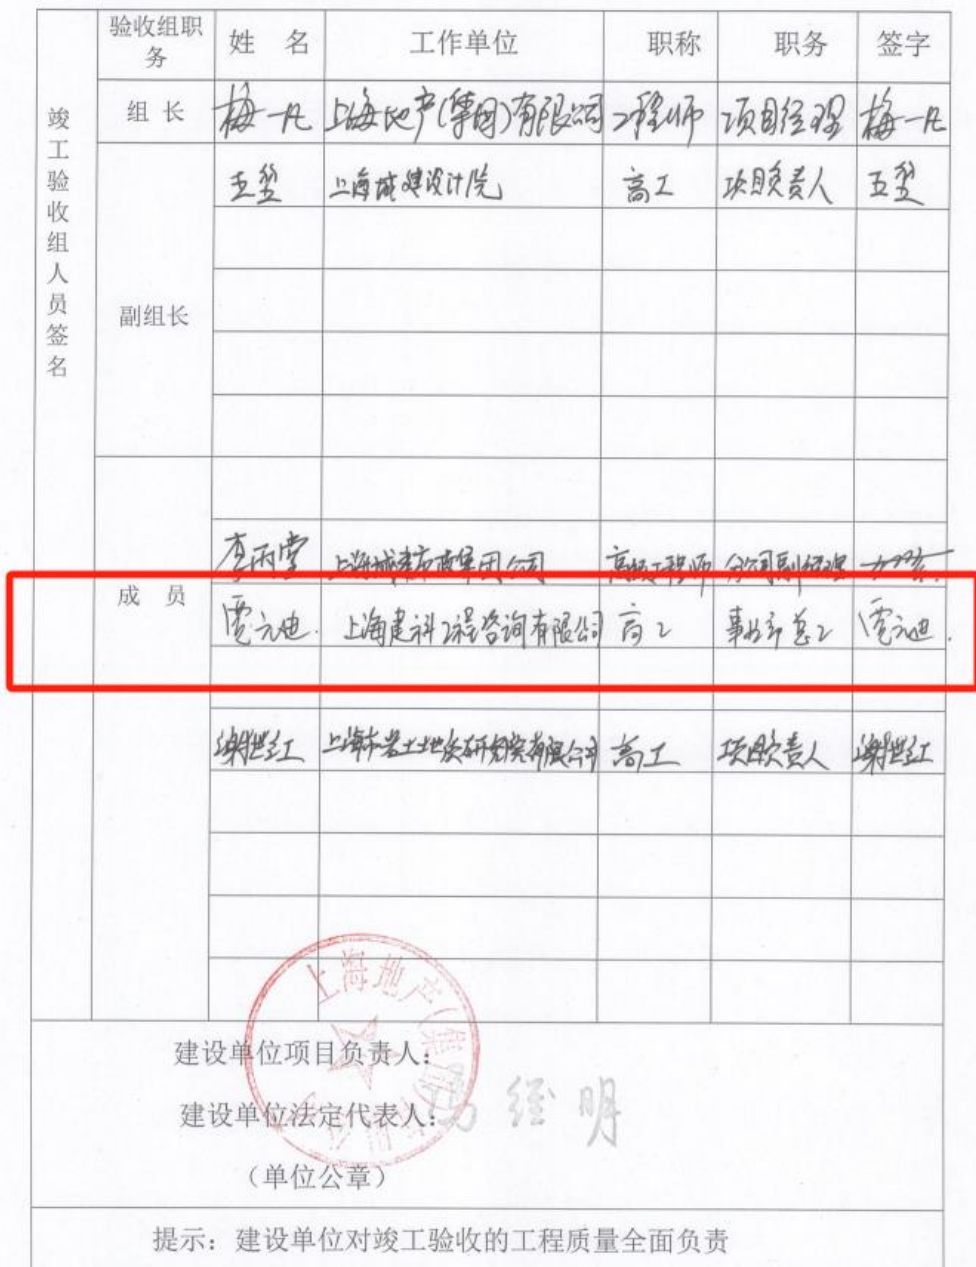 验收组职务 姓 名 工作单位 职称 职务 签字
竣工验收组人员签名
组 长 梅一凡 上海地产(集团)有限公司 工程师 项目经理 梅一凡
副组长
上海城建设计院 高工 项目负责人
李雨堂 上海城建市政集团公司 高级工程师 分公司副经理
成 员
贾元迪 上海建科工程咨询有限公司 高工 事业部总工 贾元迪
谢世红 上海市岩土地质研究院有限公司 高工 项目负责人 谢世红
上海地产(集团)有限公司
建设单位项目负责人：
建设单位法定代表人：冯经明
（单位公章）
提示：建设单位对竣工验收的工程质量全面负责